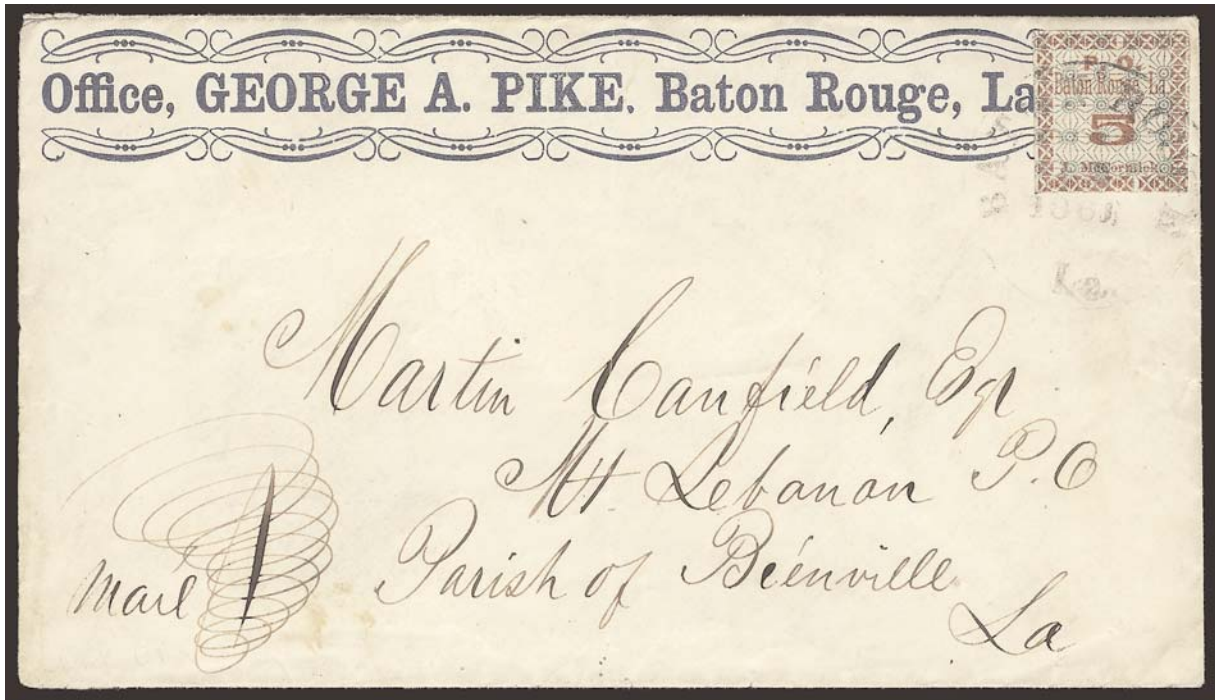 Office, GEORGE A. PIKE. Baton Rouge, La
P. O.
Baton Rouge, La
5
J. McCormick
1861
La.
Martin Canfield, Esqr
Mt Lebanon P.O
Parish of Bienville
La
Mail